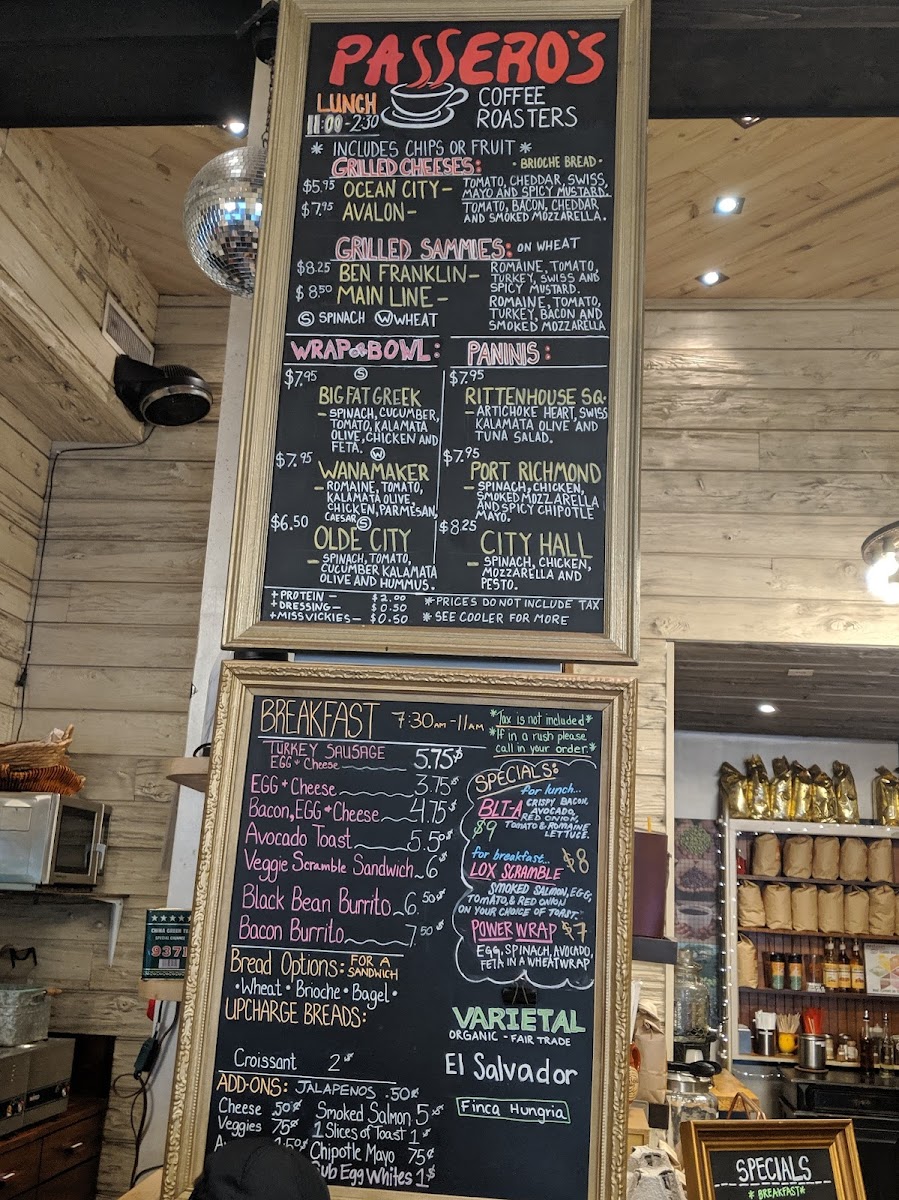 PASSERO'S
COFFEE
ROASTERS
LUNCH
11:00-2:30
* INCLUDES CHIPS OR FRUIT *
GRILLED CHEESES: · BRIOCHE BREAD ·
$5.95 OCEAN CITY - TOMATO, CHEDDAR, SWISS,
MAYO AND SPICY MUSTARD.
$7.95 AVALON - TOMATO, BACON, CHEDDAR
AND SMOKED MOZZARELLA.
GRILLED SAMMIES: ON WHEAT
$8.25 BEN FRANKLIN - ROMAINE, TOMATO,
TURKEY, SWISS AND
SPICY MUSTARD.
$8.50 MAIN LINE - ROMAINE, TOMATO,
TURKEY, BACON AND
SMOKED MOZZARELLA
S SPINACH W WHEAT
WRAP OR BOWL:
$7.95 S
BIG FAT GREEK
- SPINACH, CUCUMBER,
TOMATO, KALAMATA
OLIVE, CHICKEN AND
FETA.
$7.95 W
WANAMAKER
- ROMAINE, TOMATO,
KALAMATA OLIVE,
CHICKEN, PARMESAN,
CAESAR
$6.50 S
OLDE CITY
- SPINACH, TOMATO,
CUCUMBER KALAMATA
OLIVE AND HUMMUS.
PANINIS:
$7.95
RITTENHOUSE SQ.
- ARTICHOKE HEART, SWISS
KALAMATA OLIVE AND
TUNA SALAD.
$7.95
PORT RICHMOND
- SPINACH, CHICKEN,
SMOKED MOZZARELLA
AND SPICY CHIPOTLE
MAYO.
$8.25
CITY HALL
- SPINACH, CHICKEN,
MOZZARELLA AND
PESTO.
+PROTEIN - $2.00 *PRICES DO NOT INCLUDE TAX
+DRESSING - $0.50
+MISSVICKIES - $0.50 *SEE COOLER FOR MORE
BREAKFAST 7:30AM-11AM
*Tax is not included*
*If in a rush please
call in your order*
TURKEY SAUSAGE
EGG + Cheese 5.75$
EGG + Cheese 3.75$
Bacon, EGG + Cheese 4.75$
Avocado Toast 5.50$
Veggie Scramble Sandwich 6$
Black Bean Burrito 6.50$
Bacon Burrito 7.50
Bread Options: FOR A
SANDWICH
·Wheat·Brioche·Bagel·
UPCHARGE BREADS:
Croissant 2$
ADD-ONS: JALAPENOS .50¢
Cheese .50¢
Veggies 75¢
Smoked Salmon 5$
1 Slices of Toast 1$
Chipotle Mayo 75¢
Sub Egg Whites 1$
SPECIALS:
for lunch...
BLT-A CRISPY BACON,
AVOCADO,
RED ONION,
$9 TOMATO & ROMAINE
LETTUCE.
for breakfast... $8
LOX SCRAMBLE
SMOKED SALMON, EGG,
TOMATO, & RED ONION
ON YOUR CHOICE OF TOAST.
POWER WRAP $7
EGG, SPINACH, AVOCADO,
FETA IN A WHEAT WRAP
VARIETAL
ORGANIC - FAIR TRADE
El Salvador
Finca Hungria
937
SPECIALS
*BREAKFAST*